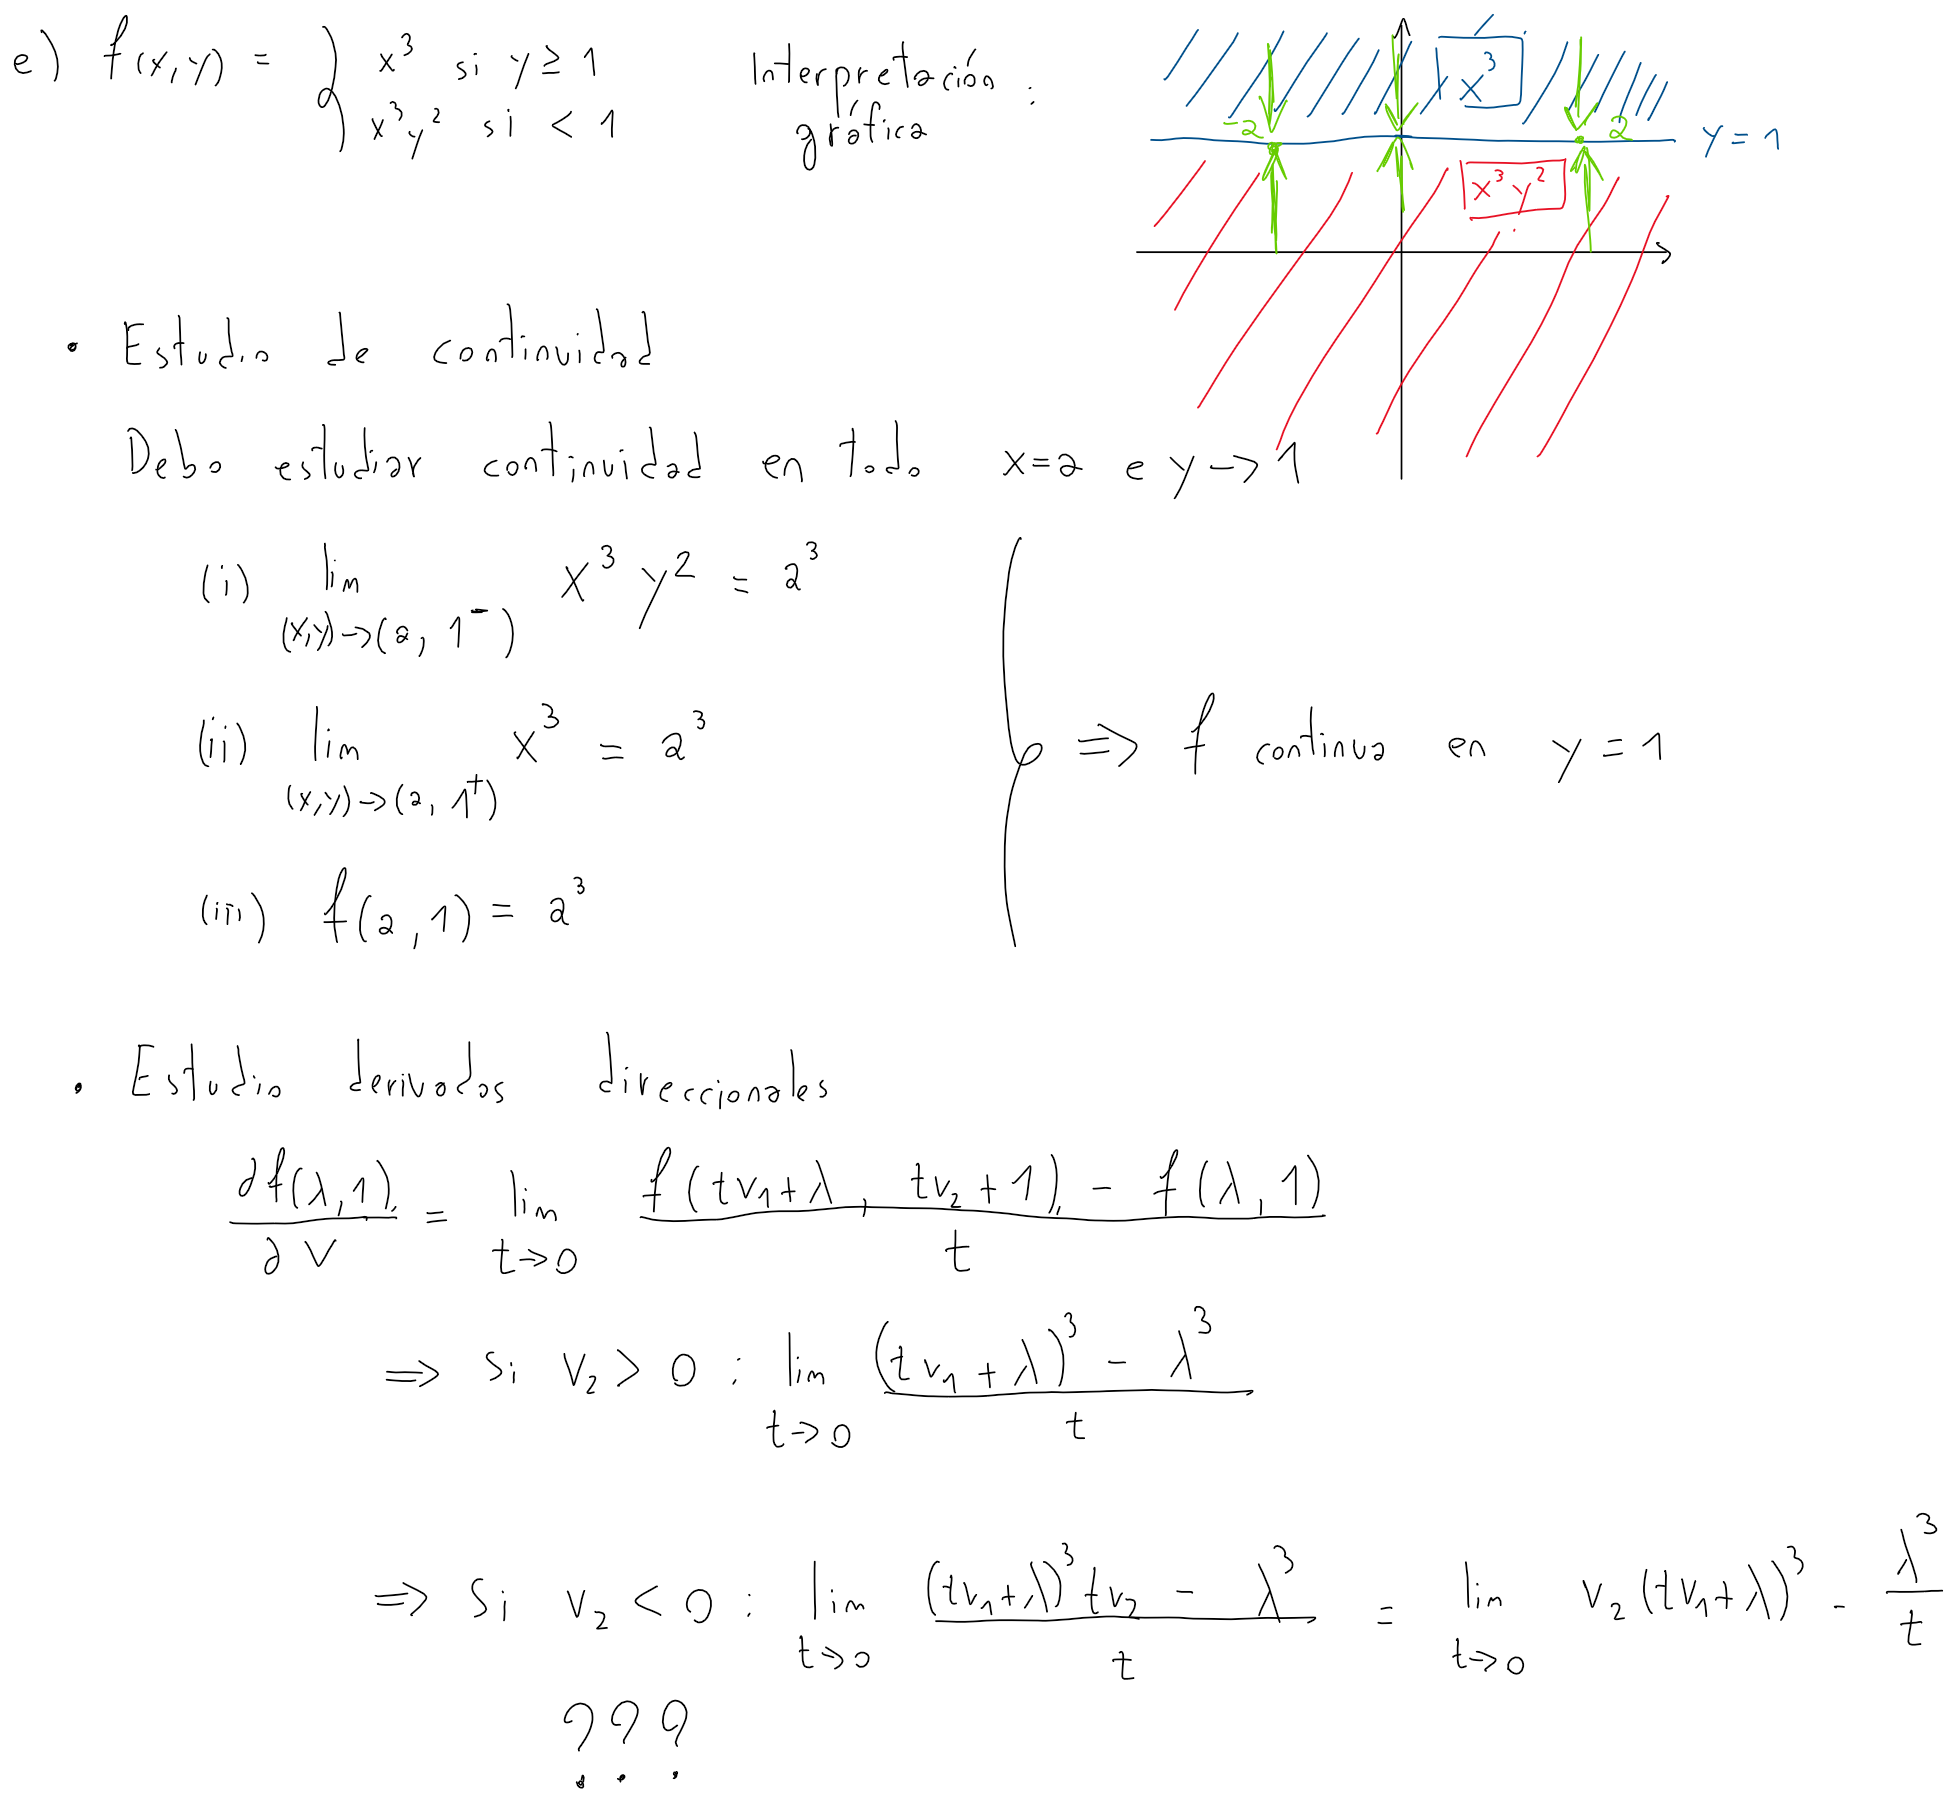 e) f(x,y) = { x³ si y ≥ 1
x³y² si < 1
Interpretación
gráfica :
x³
-2
2
y = 1
x³y²
• Estudio de continuidad
Debo estudiar continuidad en todo x=a e y → 1
(i) lim x³ y² = a³
(x,y)→(a, 1⁻)
(ii) lim x³ = a³
(x,y)→(a, 1⁺)
⇒ f continua en y = 1
(iii) f(a,1) = a³
• Estudio derivadas direccionales
∂f(λ,1) / ∂v = lim t→0 (f(tv₁+λ, tv₂+1) - f(λ,1)) / t
⇒ Si v₂ > 0 : lim t→0 ((tv₁+λ)³ - λ³) / t
⇒ Si v₂ < 0 : lim t→0 ((tv₁+λ)³ tv₂ - λ³) / t = lim t→0 v₂(tv₁+λ)³ - λ³/t
???